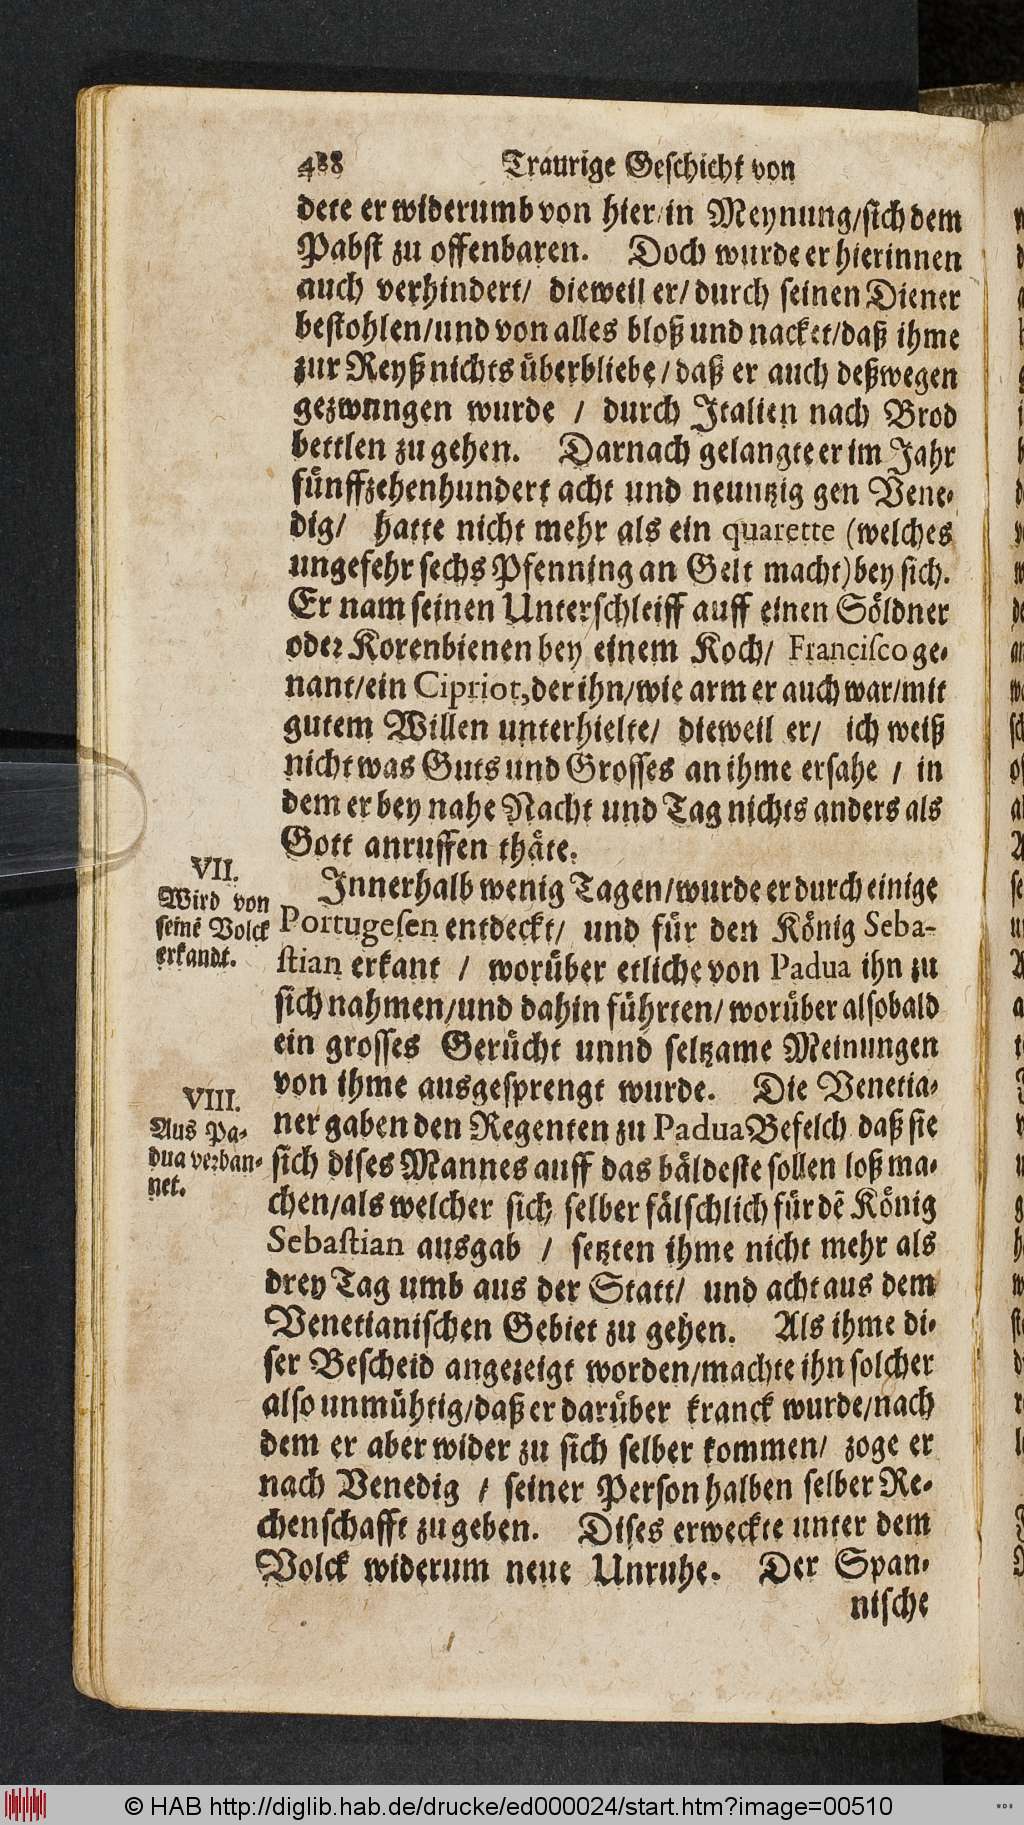 488 Traurige Geschicht von
dete er widerumb von hier/in Meynung/sich dem
Pabst zu offenbaren. Doch wurde er hierinnen
auch verhindert/ dieweil er/durch seinen Diener
bestohlen/und von alles bloß und nacket/daß ihme
zur Reyß nichts überbliebe/daß er auch deßwegen
gezwungen wurde / durch Italien nach Brod
bettlen zu gehen. Darnach gelangte er im Jahr
fünffzehenhundert acht und neuntzig gen Vene-
dig/ hatte nicht mehr als ein quarette (welches
ungefehr sechs Pfenning an Gelt macht) bey sich.
Er nam seinen Unterschleiff auff einen Söldner
oder Korenbienen bey einem Koch/ Francisco ge-
nant/ein Cipriot, der ihn/wie arm er auch war/mit
gutem Willen unterhielte/ dieweil er/ ich weiß
nicht was Guts und Grosses an ihme ersahe / in
dem er bey nahe Nacht und Tag nichts anders als
Gott anruffen thäte.
VII.
Wird von
seinē Volck
erkandt.
Innerhalb wenig Tagen/wurde er durch einige
Portugesen entdeckt/ und für den König Seba-
stian erkant / worüber etliche von Padua ihn zu
sich nahmen/und dahin führten/worüber alsobald
ein grosses Gerücht unnd seltzame Meinungen
von ihme ausgesprengt wurde. Die Venetia-
VIII.
Aus Pa-
dua verban-
net.
ner gaben den Regenten zu Padua Befelch daß sie
sich dises Mannes auff das bäldeste sollen loß ma-
chen/als welcher sich selber fälschlich für dē König
Sebastian ausgab / setzten ihme nicht mehr als
drey Tag umb aus der Statt/ und acht aus dem
Venetianischen Gebiet zu gehen. Als ihme di-
ser Bescheid angezeigt worden/machte ihn solcher
also unmühtig/daß er darüber kranck wurde/nach
dem er aber wider zu sich selber kommen/ zoge er
nach Venedig / seiner Person halben selber Re-
chenschafft zu geben. Dises erweckte unter dem
Volck widerum neue Unruhe. Der Span-
nische
© HAB http://diglib.hab.de/drucke/ed000024/start.htm?image=00510